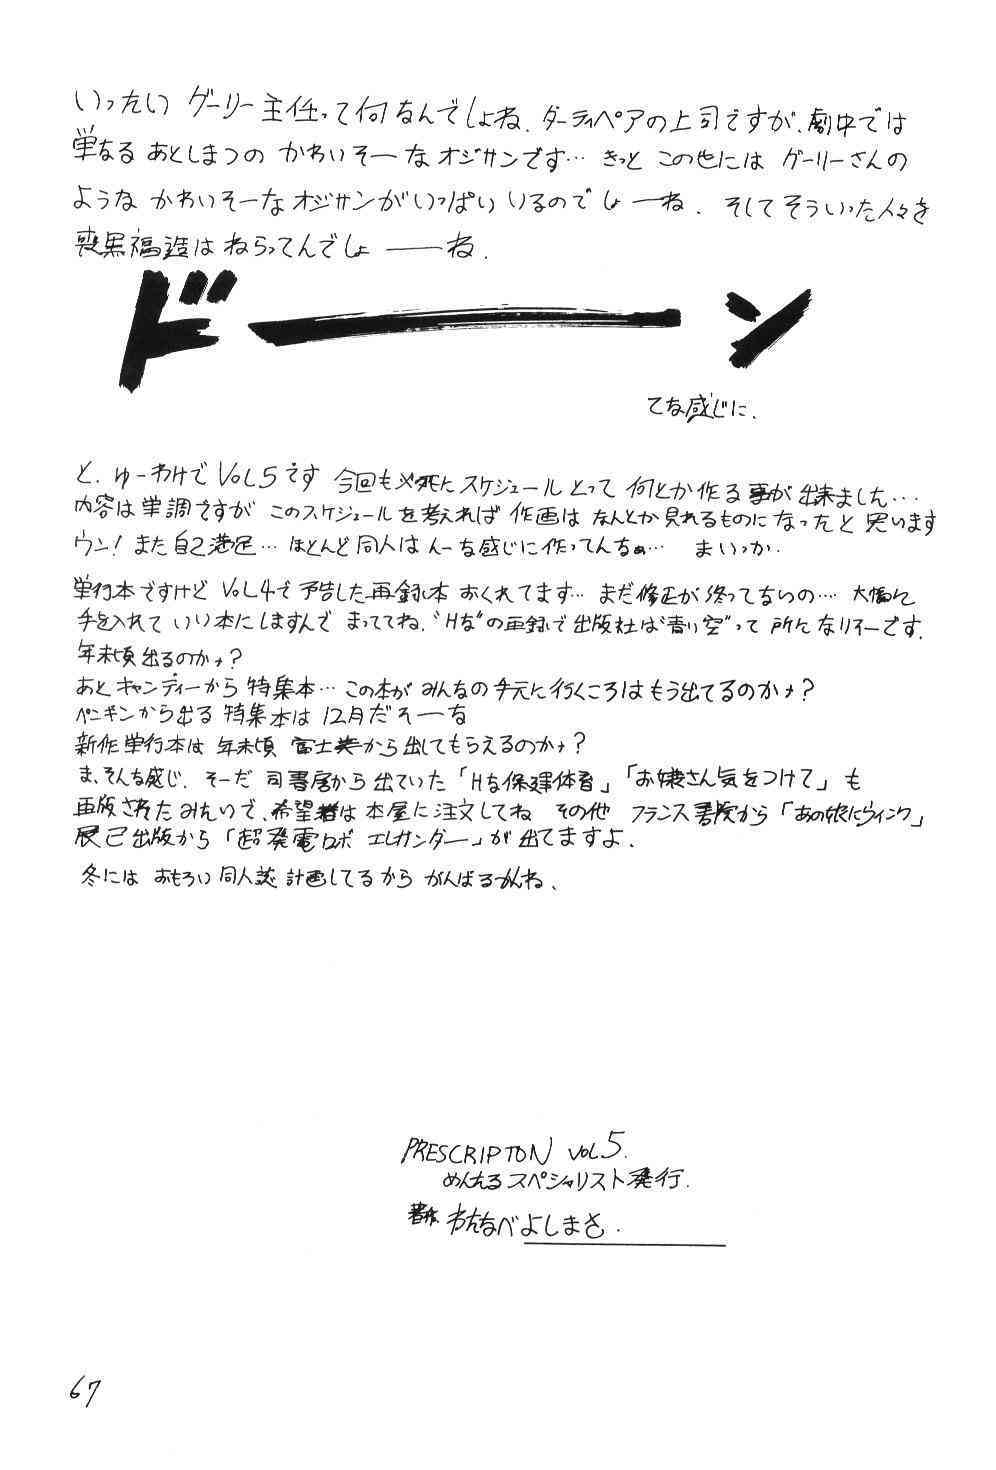 いったい ゲーリー主任って何なんでしょね. ダーティペアの上司ですが、劇中では
単なる あとしまつの かわいそーな オジサンです… きっと この世には ゲーリーさんの
ような かわいそーな オジサンがいっぱい いるのでしょーね. そしてそういった人々を
喪黒福造は ねらってんでしょ――ね.
ドーン
てな感じに.
と. ゆーわけで VOL5です 今回も必死にスケジュールとって 何とか作る事が出来ました…
内容は単調ですが このスケジュールを考えれば 作画は なんとか見れるものになったと思います
ウン! また自己満足… ほとんど同人は んーな感じに作ってんなぁ… まいっか.
単行本ですけど VOL4で予告した再録本 おくれてます… まだ修正が終ってないの…. 大幅に
手を入れて いい本にしますんで まっててね. "Hな"の再録で出版社は"青い空"って 所になりそーです.
年末頃出るのかナ?
あと キャンディーから 特集本… この本が みんなの手元に行くころはもう出てるのかナ?
ペンギンから出る 特集本は 12月だそーな
新作単行本は 年末頃 富士美から出してもらえるのかナ?
ま、そんな感じ. そーだ 司書房から出ていた「Hな保健体育」「お嬢さん気をつけて」も
再版されたみたいで、希望者は本屋に注文してね その他 フランス書院から「あの娘にウィンク」
辰己出版から「超発電ロボ エレガンダー」が出てますよ.
冬には おもろい同人誌 計画してるから がんばるかんね、
PRESCRIPTON VOL5.
めんたるスペシャリスト発行.
著作 わたなべよしまさ.
67